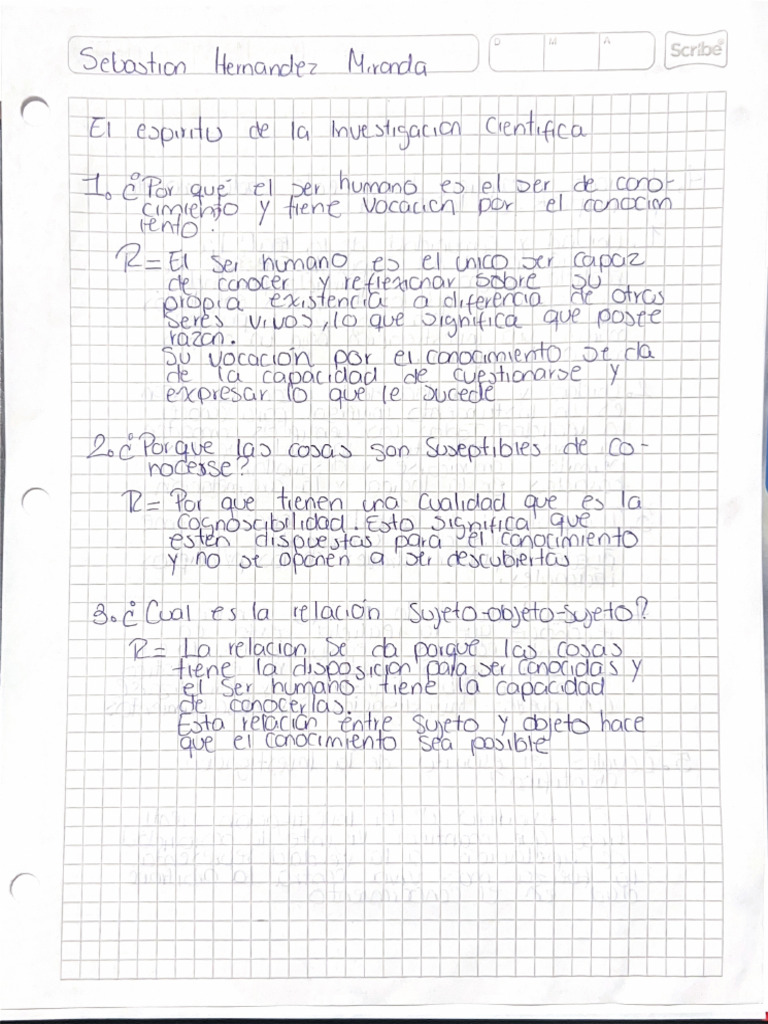 Sebastian Hernandez Miranda
D M A
Scribe
El espiritu de la Investigacion Cientifica
1. ¿Por qué el ser humano es el ser de cono-
cimiento y tiene vocación por el conocim
iento?
R= El ser humano es el unico ser capaz
de conocer y reflexionar sobre su
propia existencia a diferencia de otros
seres vivos, lo que significa que posee
razon.
Su vocación por el conocimiento se da
de la capacidad de cuestionarse y
expresar lo que le sucede
2. ¿Porque las cosas son suseptibles de co-
nocerse?
R= Por que tienen una cualidad que es la
cognoscibilidad. Esto significa que
esten dispuestas para el conocimiento
y no se oponen a ser descubiertas
3. ¿Cual es la relación sujeto-objeto-sujeto?
R= La relacion se da porque las cosas
tiene la disposicion para ser conocidas y
el ser humano tiene la capacidad
de conocerlas.
Esta relación entre sujeto y objeto hace
que el conocimiento sea posible